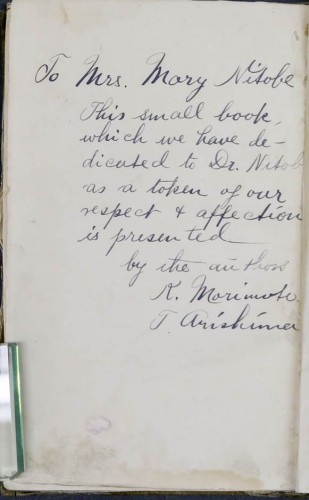 To Mrs. Mary Nitobe
This small book,
which we have de-
dicated to Dr. Nitobe
as a token of our
respect & affection
is presented
by the authors
K. Morimoto
T. Arishima